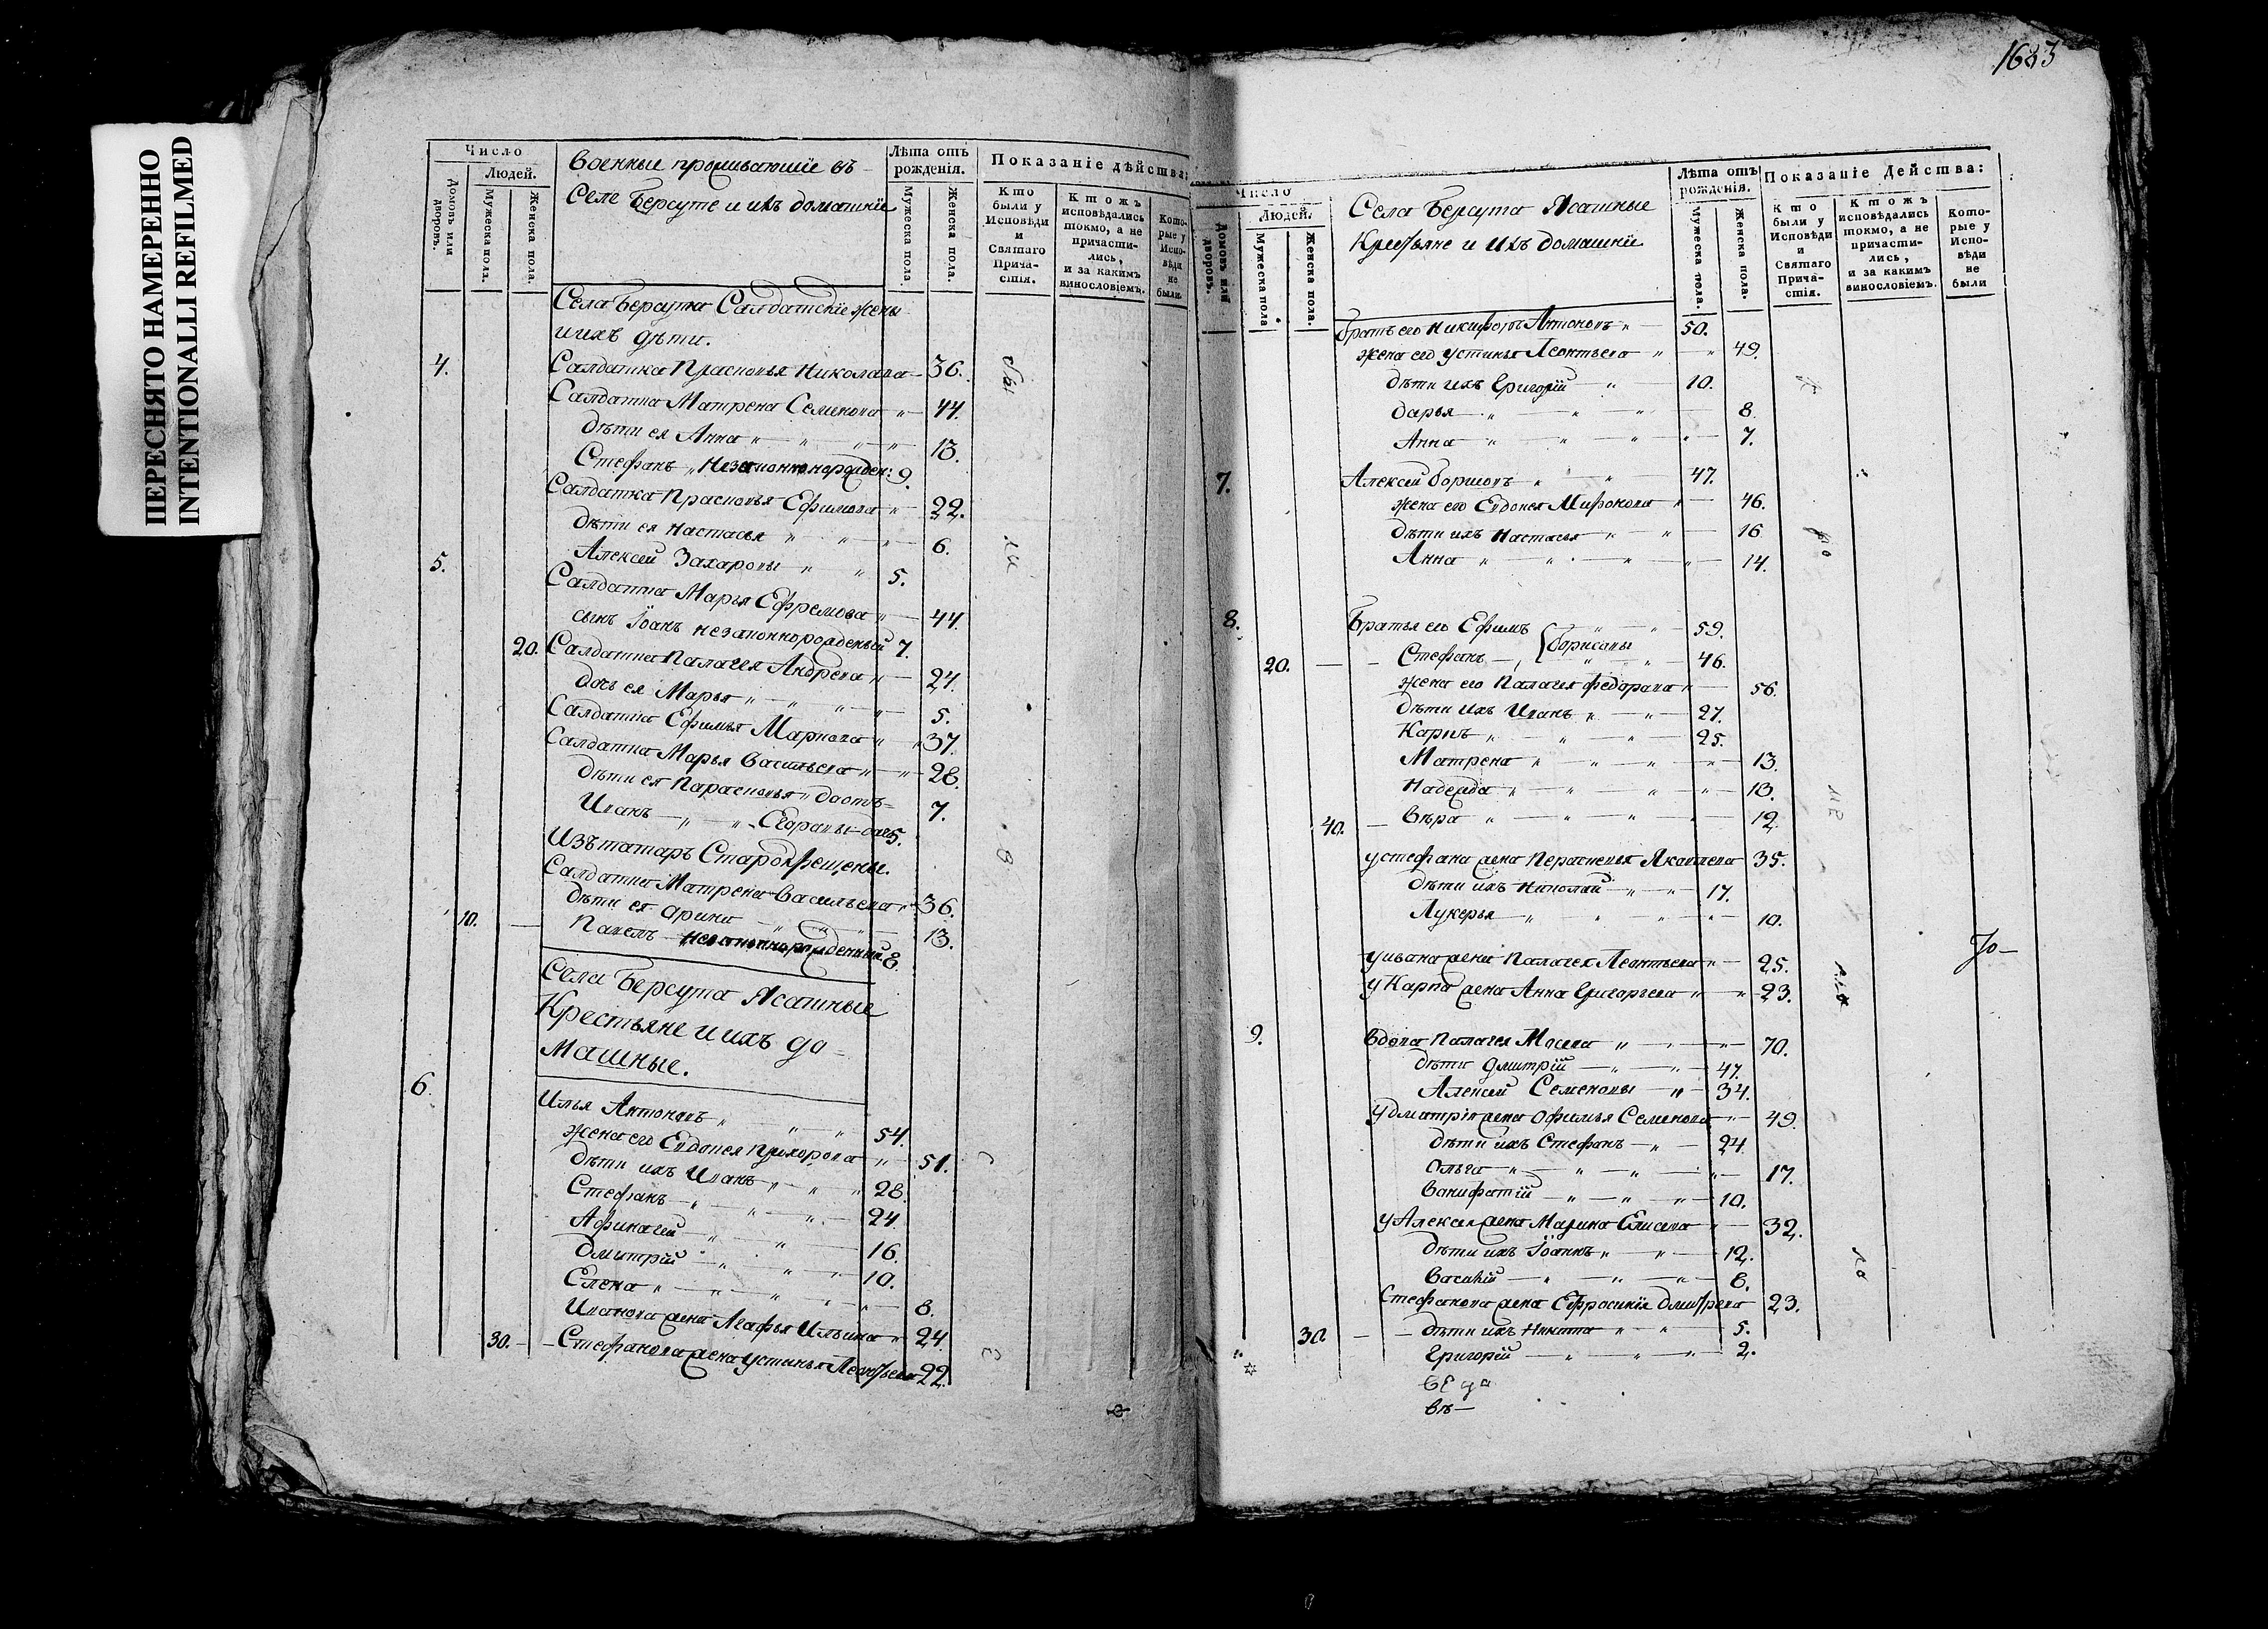 ПЕРЕСНЯТО НАМЕРЕННО
INTENTIONALLI REFILMED
Число
Людей.
Домовъ или дворовъ.
Мужеска пола.
Женска пола.
Военные проживающiе въ
Селе Берсуте и ихъ домашнiе
Лѣта отъ рожденiя.
Мужеска пола
Женска пола.
Показанiе дѣйства:
Кто были у Исповѣди и Святаго Причастiя.
Ктожъ исповѣдались токмо, а не причастились, и за какимъ винословiемъ.
Которые у Исповѣди не были.
Села Берсута Салдатскiе жены
и ихъ дѣти.
4. Салдатка Прасковья Николаева 36.
Салдатка Матрена Семенова 44.
Дѣти ея Анна 13.
Стефанъ Незаконнорожден: 9.
Салдатка Прасковья Ефимова 22.
Дѣти ея Настасья 6.
Алексей Захаровы 5.
5. Салдатка Марья Ефремова 44.
сынъ Iоанъ незаконнорожденый 7.
20. Салдатка Палагея Андрева 24.
дочь ея Марья 5.
Салдатка Ефимья Маркова 37.
Салдатка Марья Васильева 28.
Дѣти ея Парасковья 7.
Иванъ Егоровы 5.
Изъ татаръ Старокрещены.
Салдатка Матрена Васильева 36.
Дѣти ея Арина 13.
10. Павелъ Незаконнорожденный 8.
Села Берсута Ясашные
Крестьяне и ихъ до=
машные.
6. Илья Антоновъ 54.
Жена его Евдокея Прохорова 51.
Дѣти ихъ Иванъ 28.
Стефанъ 24
Афинагей 16.
Дмитрiй 10.
Елена 8.
Иванова жена Агафья Ильина 24.
30. Стефанова жена Устинья Леонтьева 22.
1683
Число
Людей.
Домовъ или дворовъ.
Мужеска пола
Женска пола.
Села Берсута Ясашные
Крестьяне и ихъ домашнiе
Лѣта отъ рожденiя.
Мужеска пола.
Женска пола.
Показанiе Действа:
Кто были у Исповѣди и Святаго Причастiя.
Ктожъ исповѣдались токмо, а не причастились, и за какимъ винословiемъ.
Которые у Исповѣди не были
Братъ его Никифоръ Антоновъ 50.
Жена его Устинья Леонтьева 49.
Дѣти ихъ Григорiй 10.
Дарья 8.
Анна 7.
7. Алексей Борисовъ 47.
Жена его Евдокея Миронова 46.
Дѣти ихъ Настасья 16
Анна 14.
8. Братья его Ефимъ 59.
20. Стефанъ Борисовы 46.
Жена его Палагея Федорова 56.
Дѣти ихъ Иванъ 27.
Карпъ 25.
Матрена 13.
Надежда 13.
40. Вѣра 12
У Стефана жена Параскевья Яковлева 35.
Дѣти ихъ Николай 17.
Лукерья 10.
У Ивана жена Палагея Леонтьева 25.
У Карпа жена Анна Григорьева 23.
9. Вдова Палагея Мосева 70.
Дѣти Дмитрiй 47.
Алексей Семеновы 34.
У Дмитрiя жена Офимья Семенова 49.
Дѣти ихъ Стефанъ 24
Ольга 17.
Ванифатiй 10.
У Алексея жена Марина Елисева 32.
Дѣти ихъ Iоаннъ 12.
Василiй 8.
Стефанова жена Ефросинiя Дмитрева 23.
30. Дѣти ихъ Никита 5.
Григорiй 2.